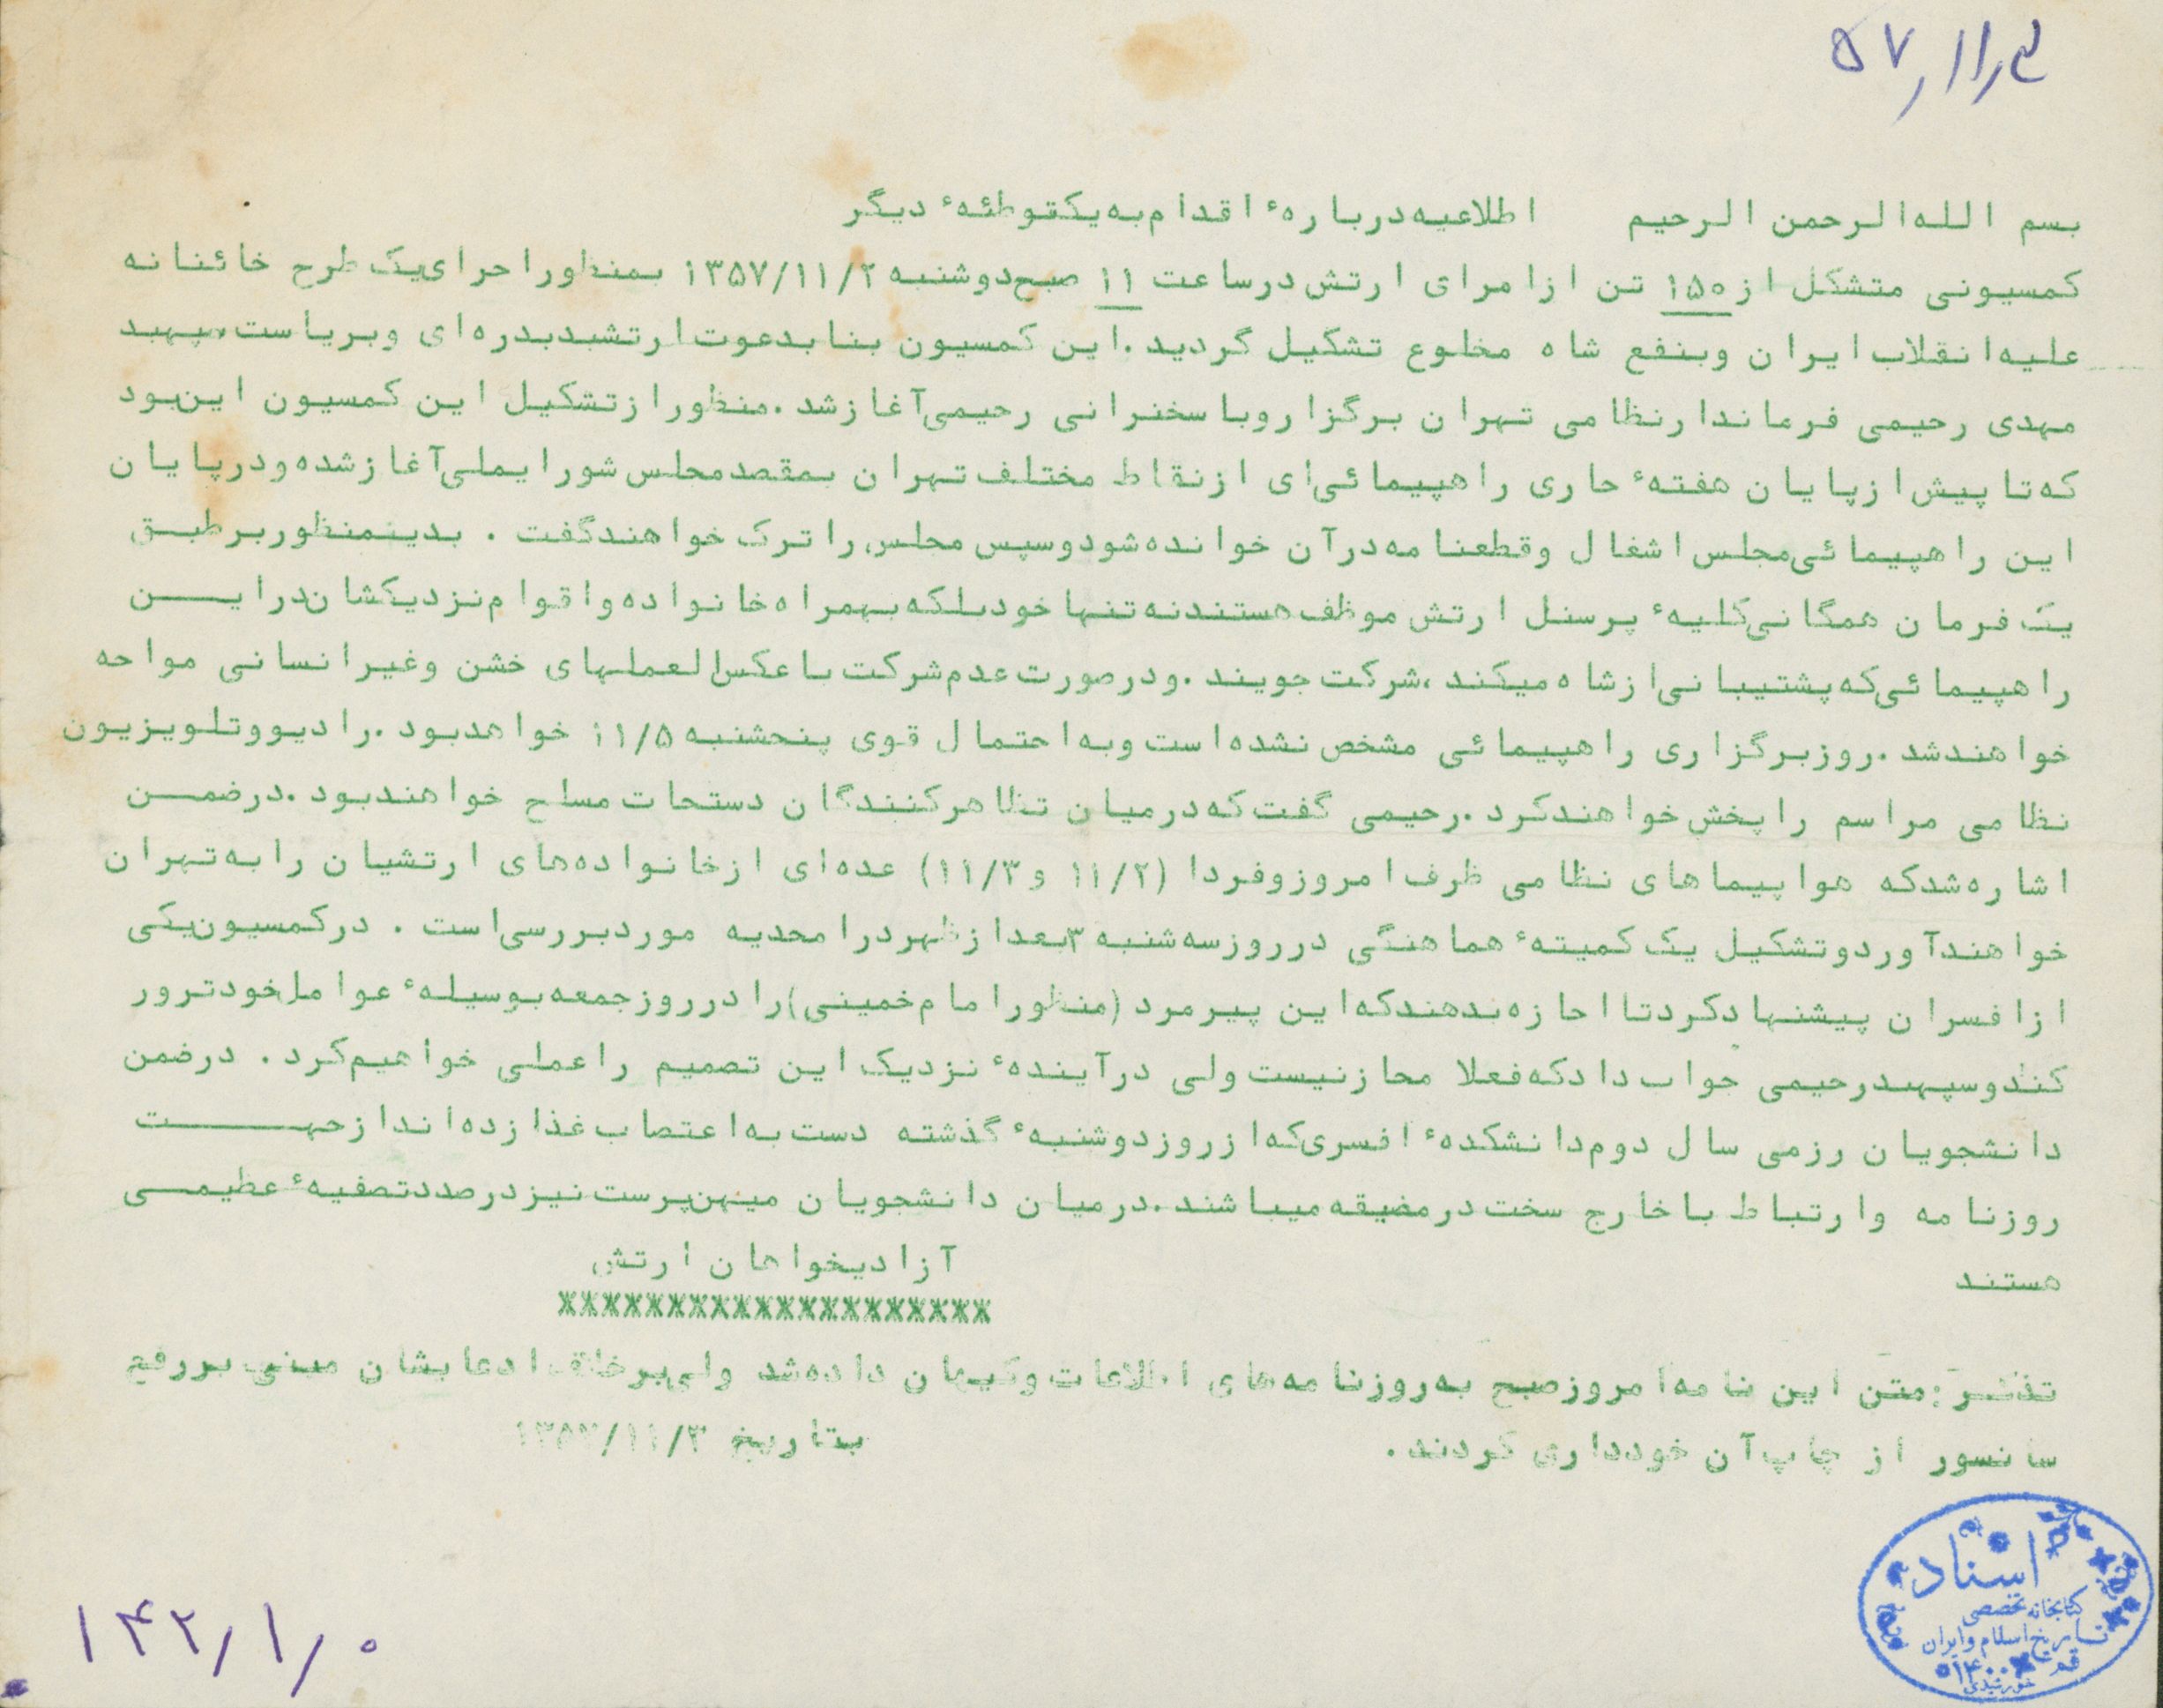 ۵۷٫۱۱٫۳
بسم الله الرحمن الرحیم اطلاعیه درباره‌ٔ اقدام به یکتوطئهٔ دیگر
کمسیونی متشکل از ۱۵۰ تن از امرای ارتش در ساعت ۱۱ صبح دوشنبه ۱۳۵۷/۱۱/۲ بمنظور اجرای یک طرح خائنانه
علیه انقلاب ایران و بنفع شاه مخلوع تشکیل گردید. این کمسیون بنا بدعوت ارتشبد بدره‌ای و بریاست سپهبد
مهدی رحیمی فرماندار نظامی تهران برگزار و با سخنرانی رحیمی آغاز شد. منظور از تشکیل این کمسیون این بود
که تا پیش از پایان هفتهٔ جاری راهپیمائی‌ای از نقاط مختلف تهران بمقصد مجلس شورایملی آغاز شده و در پایان
این راهپیمائی مجلس اشغال و قطعنامه در آن خوانده شود و سپس مجلس را ترک خواهند گفت. بدینمنظور بر طبق
یک فرمان همگانی کلیهٔ پرسنل ارتش موظف هستند نه تنها خود بلکه بهمراه خانواده و اقوام نزدیکشان در ایـــن
راهپیمائی که پشتیبانی از شاه میکند، شرکت جویند. و در صورت عدم شرکت با عکس‌العملهای خشن و غیر انسانی مواجه
خواهند شد. روز برگزاری راهپیمائی مشخص نشده است و به احتمال قوی پنجشنبه ۱۱/۵ خواهد بود. رادیو و تلویزیون
نظامی مراسم را پخش خواهند کرد. رحیمی گفت که در میان تظاهر کنندگان دستجات مسلح خواهند بود. در ضمــن
اشاره شد که هواپیماهای نظامی ظرف امروز و فردا (۱۱/۲ و ۱۱/۳) عده‌ای از خانواده‌های ارتشیان را به تهران
خواهند آورد و تشکیل یک کمیتهٔ هماهنگی در روز سه شنبه ۳ بعد از ظهر در امجدیه مورد بررسی است. در کمسیون یکی
از افسران پیشنهاد کرد تا اجازه ندهند که این پیرمرد (منظور امام خمینی) را در روز جمعه بوسیلهٔ عوامل خود ترور
کنند و سپهبد رحیمی جواب داد که فعلا مجاز نیست ولی در آیندهٔ نزدیک این تصمیم را عملی خواهیم کرد. در ضمن
دانشجویان رزمی سال دوم دانشکدهٔ افسری که از روز دوشنبهٔ گذشته دست به اعتصاب غذا زده‌اند از جهـــت
روزنامه و ارتباط با خارج سخت در مضیقه میباشند. در میان دانشجویان میهن پرست نیز در صدد تصفیهٔ عظیمــی
هستند
آزادیخواهان ارتش
xxxxxxxxxxxxxxxxxxxx
تذکــر: متن این نامه امروز صبح به روزنامه‌های اطلاعات و کیهان داده شد ولی بر خلاف ادعایشان مبنی بر رفع
سانسور از چاپ آن خودداری کردند. بتاریخ ۱۳۵۷/۱۱/۳
اسناد
کتابخانه تخصصی
تاریخ اسلام و ایران
قم
۱۴۰۰
خورشیدی
۱۴۲٫۱٫۰